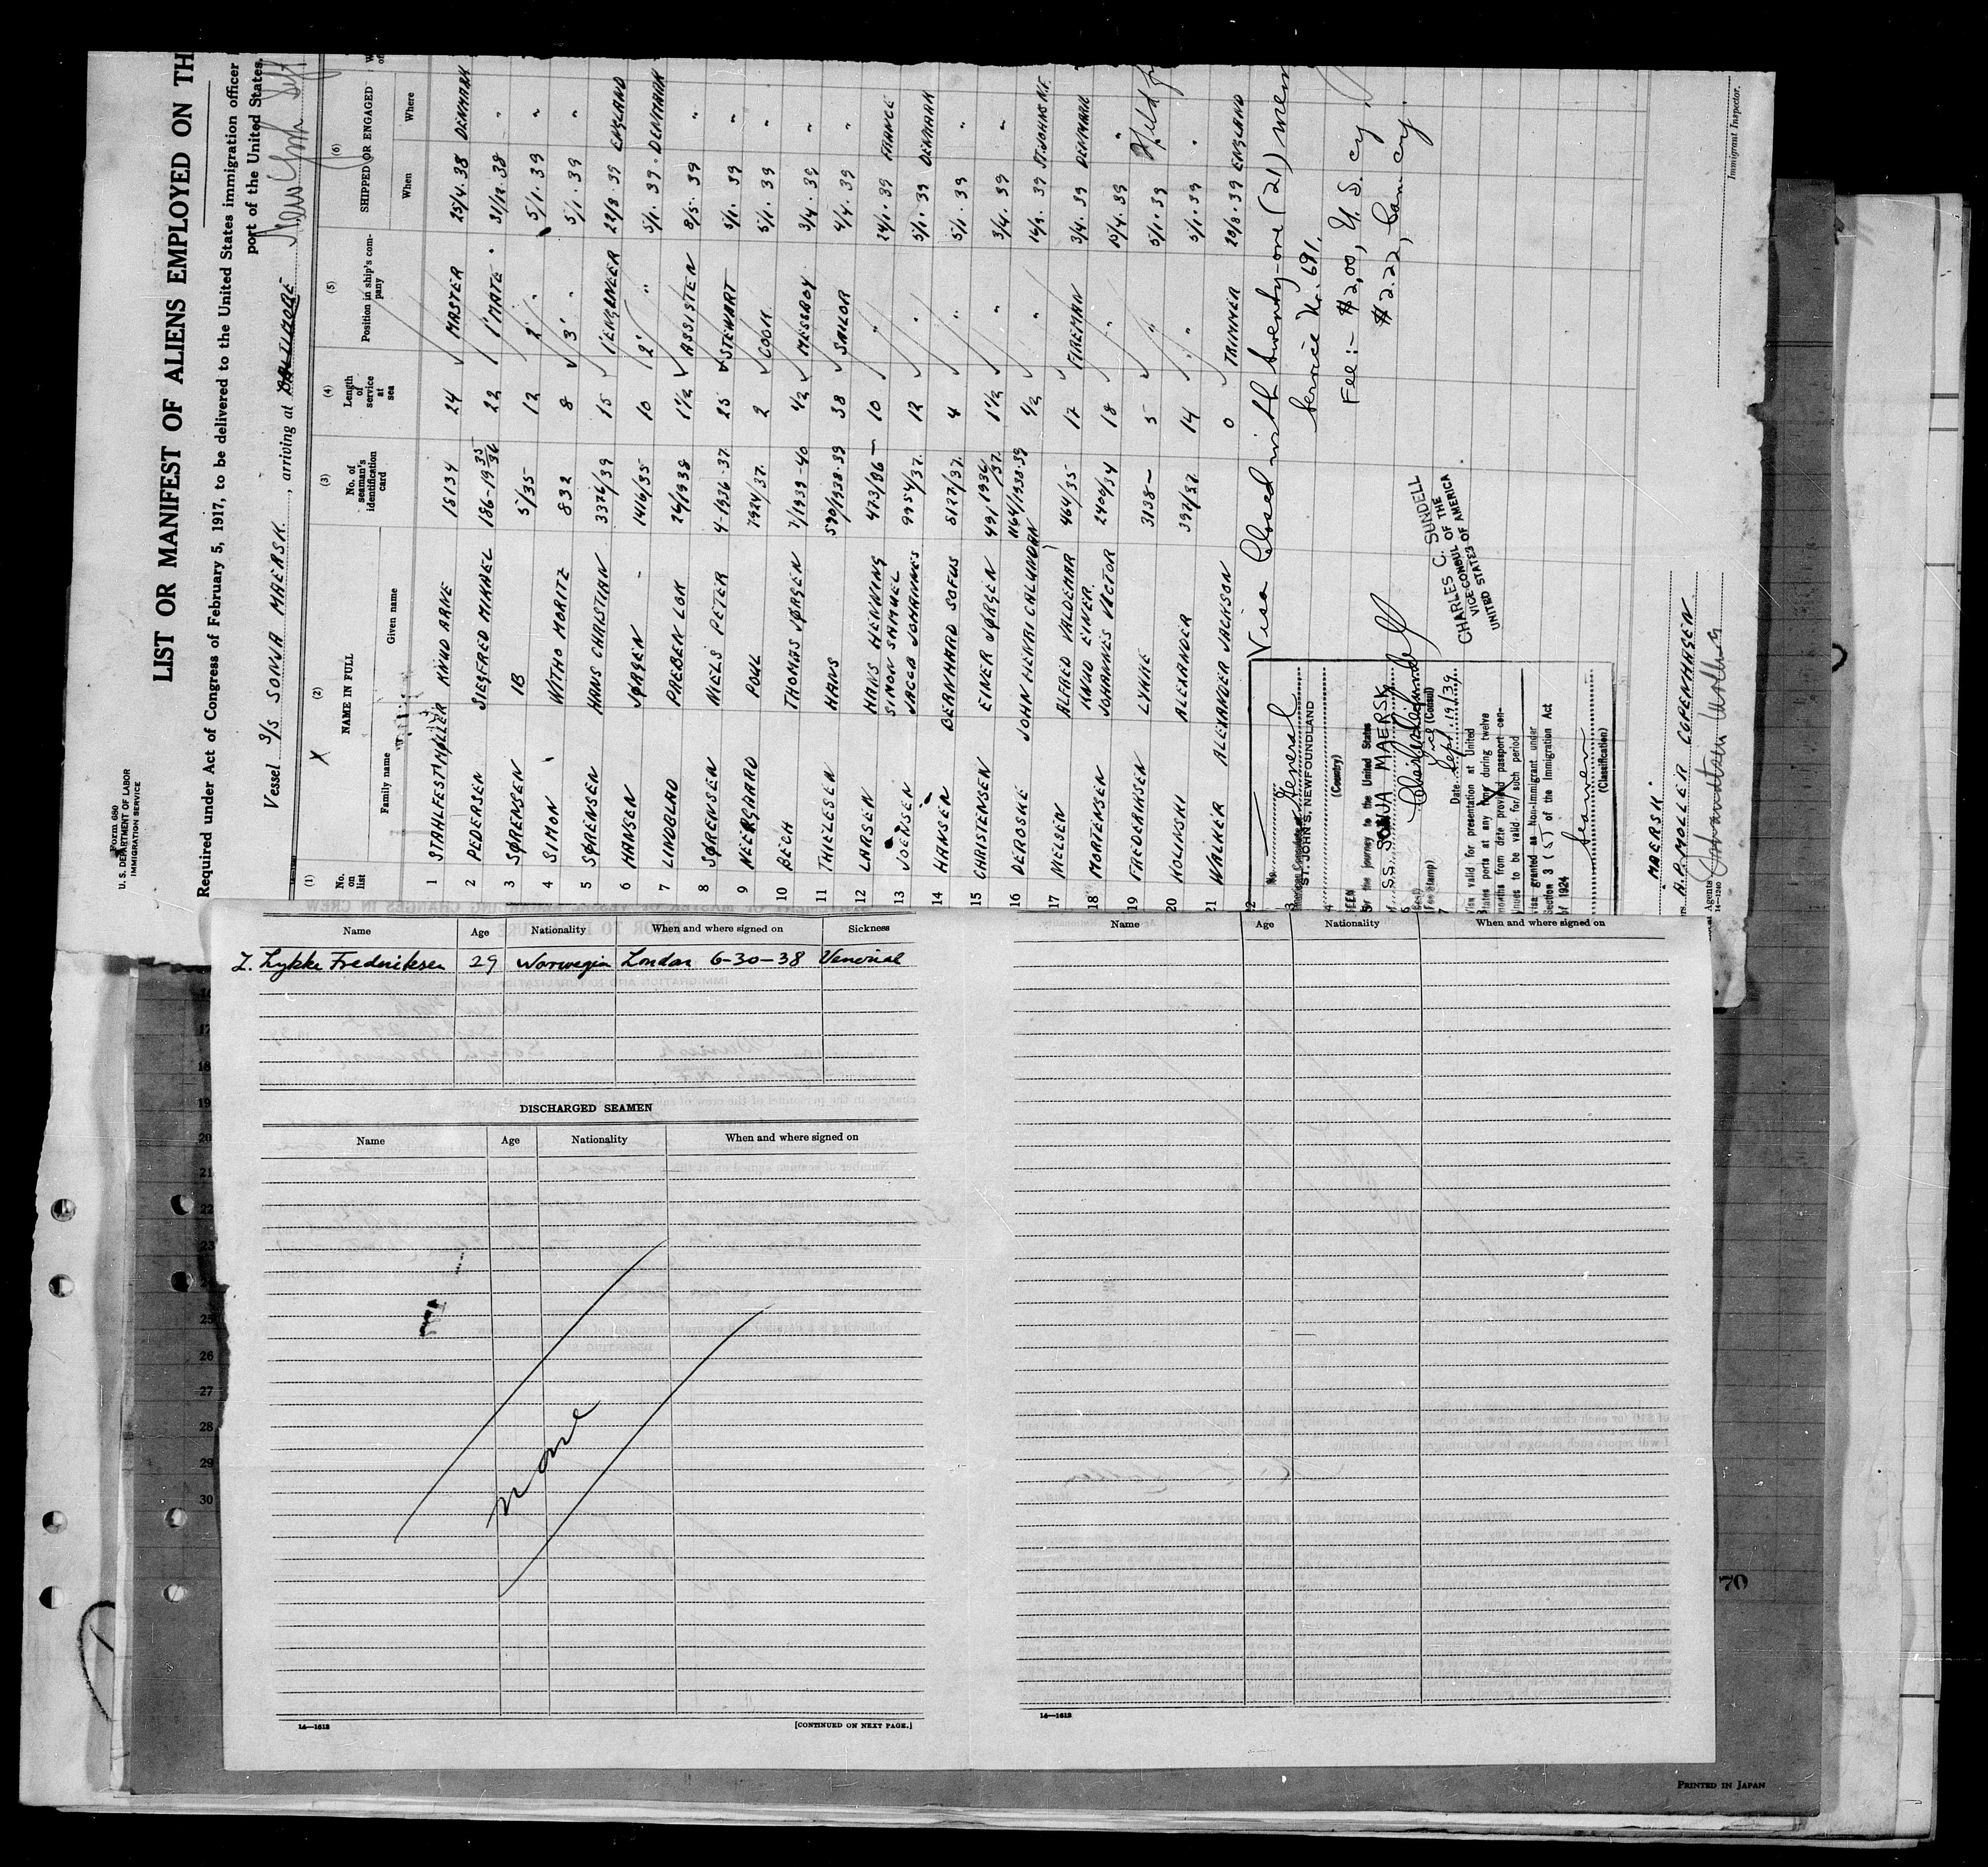 Form 680
U. S. DEPARTMENT OF LABOR
IMMIGRATION SERVICE
LIST OR MANIFEST OF ALIENS EMPLOYED ON TH
Required under Act of Congress of February 5, 1917, to be delivered to the United States immigration officer
port of the United States.
Vessel S/S SONJA MAERSK, arriving at BALTIMORE New York
(1) (2) (3) (4) (5) (6)
No. on list NAME IN FULL No. of seaman's identification card Length of service at sea Position in ship's company SHIPPED OR ENGAGED
Family name Given name When Where
1 STAHLFEST MØLLER KNUD ARNE 18134 24 MASTER 25/4. 38 DENMARK
2 PEDERSEN SIEGFRED MIKAEL 186-19 35/36 22 1' MATE 31/12 38 "
3 SØRENSEN IB 5/35 12 2' " 5/1. 39 "
4 SIMON WITHO MORITZ 832 8 3' " 5/1. 39 "
5 SØRENSEN HANS CHRISTIAN 3376/39 15 1' ENGENEER 22/8. 39 ENGLAND
6 HANSEN JØRGEN - 1416/35 10 2' " 5/1. 39. DENMARK
7 LINDBLAD PREBEN LOK 24/1938 1 1/2 ASSISTEN 8/5. 39 "
8 SØRENSEN NIELS PETER 4-1936-37. 25 STEWART 5/1. 39 "
9 NEERGAARD POUL 7924/37. 2 COOK 5/1. 39 "
10 BECH THOMAS JØRGEN 7/1939-40 1/2 MESSBOY 3/4. 39 "
11 THIELESEN HANS 590/1938-39 38 SAILOR 4/4. 39 "
12 LARSEN HANS HENNING 473/36 - 10 " 24/1. 39 FRANCE
13 JOENSEN SIMON SAMUEL JACOB JOHANNES 9954/37. 12 " 5/1. 39 DENMARK
14 HANSEN BERNHARD SOFUS 8127/37. 4 " 5/1. 39 "
15 CHRISTENSEN EINER JØRGEN 491 1936/37. 1 1/2 " 3/4. 39 "
16 DEROSKE JOHN HENRI CALUNDAN 1164/1938-39 1/2 " 14/9. 39 ST. JOHNS N.F.
17 NIELSEN ALFRED VALDEMAR 464/35 17 FIREMAN 3/4. 39 DENMARK
18 MORTENSEN KNUD EINER JOHANNES VICTOR 2400/34 18 " 15/4. 39 "
19 FREDERIKSEN LYKKE 3138 - 5 " 5/1. 39 Held
20 KOLINSKI ALEXANDER 397/37. 14 " 5/1. 39 "
21 WALKER ALEXANDER JACKSON 0 TRIMMER 20/8. 39 ENGLAND
Visa Closed with twenty-one (21) mem
Service No. 691.
Fee:- $2.00, U. S. cy.
$2.22, Can. cy.
No. General
ST. JOHN'S, NEWFOUNDLAND
(Country)
SEEN
For the journey to the United States
S.S. SONJA MAERSK
Vice (Consul)
(Fee Stamp) Date Sept. 19 1939.
Visa valid for presentation at United
States ports at any time during twelve
months from date provided passport con-
tinues to be valid for such period
Visa granted as Non-Immigrant under
Section 3 (5) of the Immigration Act
of 1924
Seamen
(Classification)
CHARLES C. SUNDELL
VICE-CONSUL OF THE
UNITED STATES OF AMERICA
"MAERSK"
A.P. MOLLER COPENHAGEN
Agents
14-1240
Immigrant Inspector.
Name Age Nationality When and where signed on Sickness
L. Lykke Frederiksen 29 Norwegia London 6-30-38 Venerial
DISCHARGED SEAMEN
Name Age Nationality When and where signed on
none
14—1613
[CONTINUED ON NEXT PAGE.]
Name Age Nationality When and where signed on
14—1613
16
17
18
19
20
21
22
23
24
25
26
27
28
29
30
70
PRINTED IN JAPAN